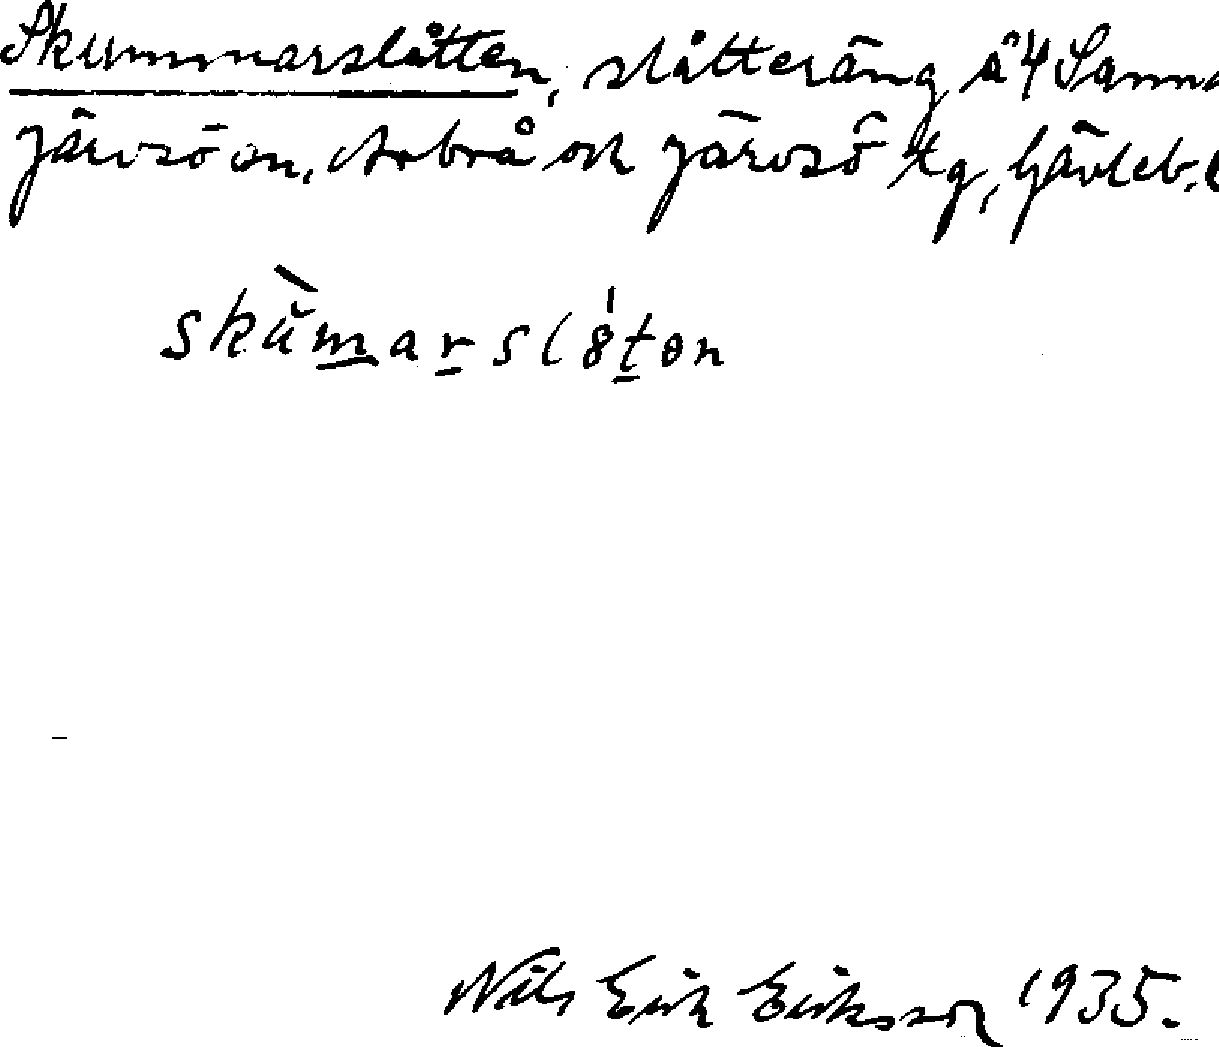 Skummarslåtten, slåtteräng å 4 Sanna
Järvsö sn, Arbrå och Järvsö tg, Gävleb. l
skŭ̀marslȣ́tən
Nils Erik Eriksson 1935.